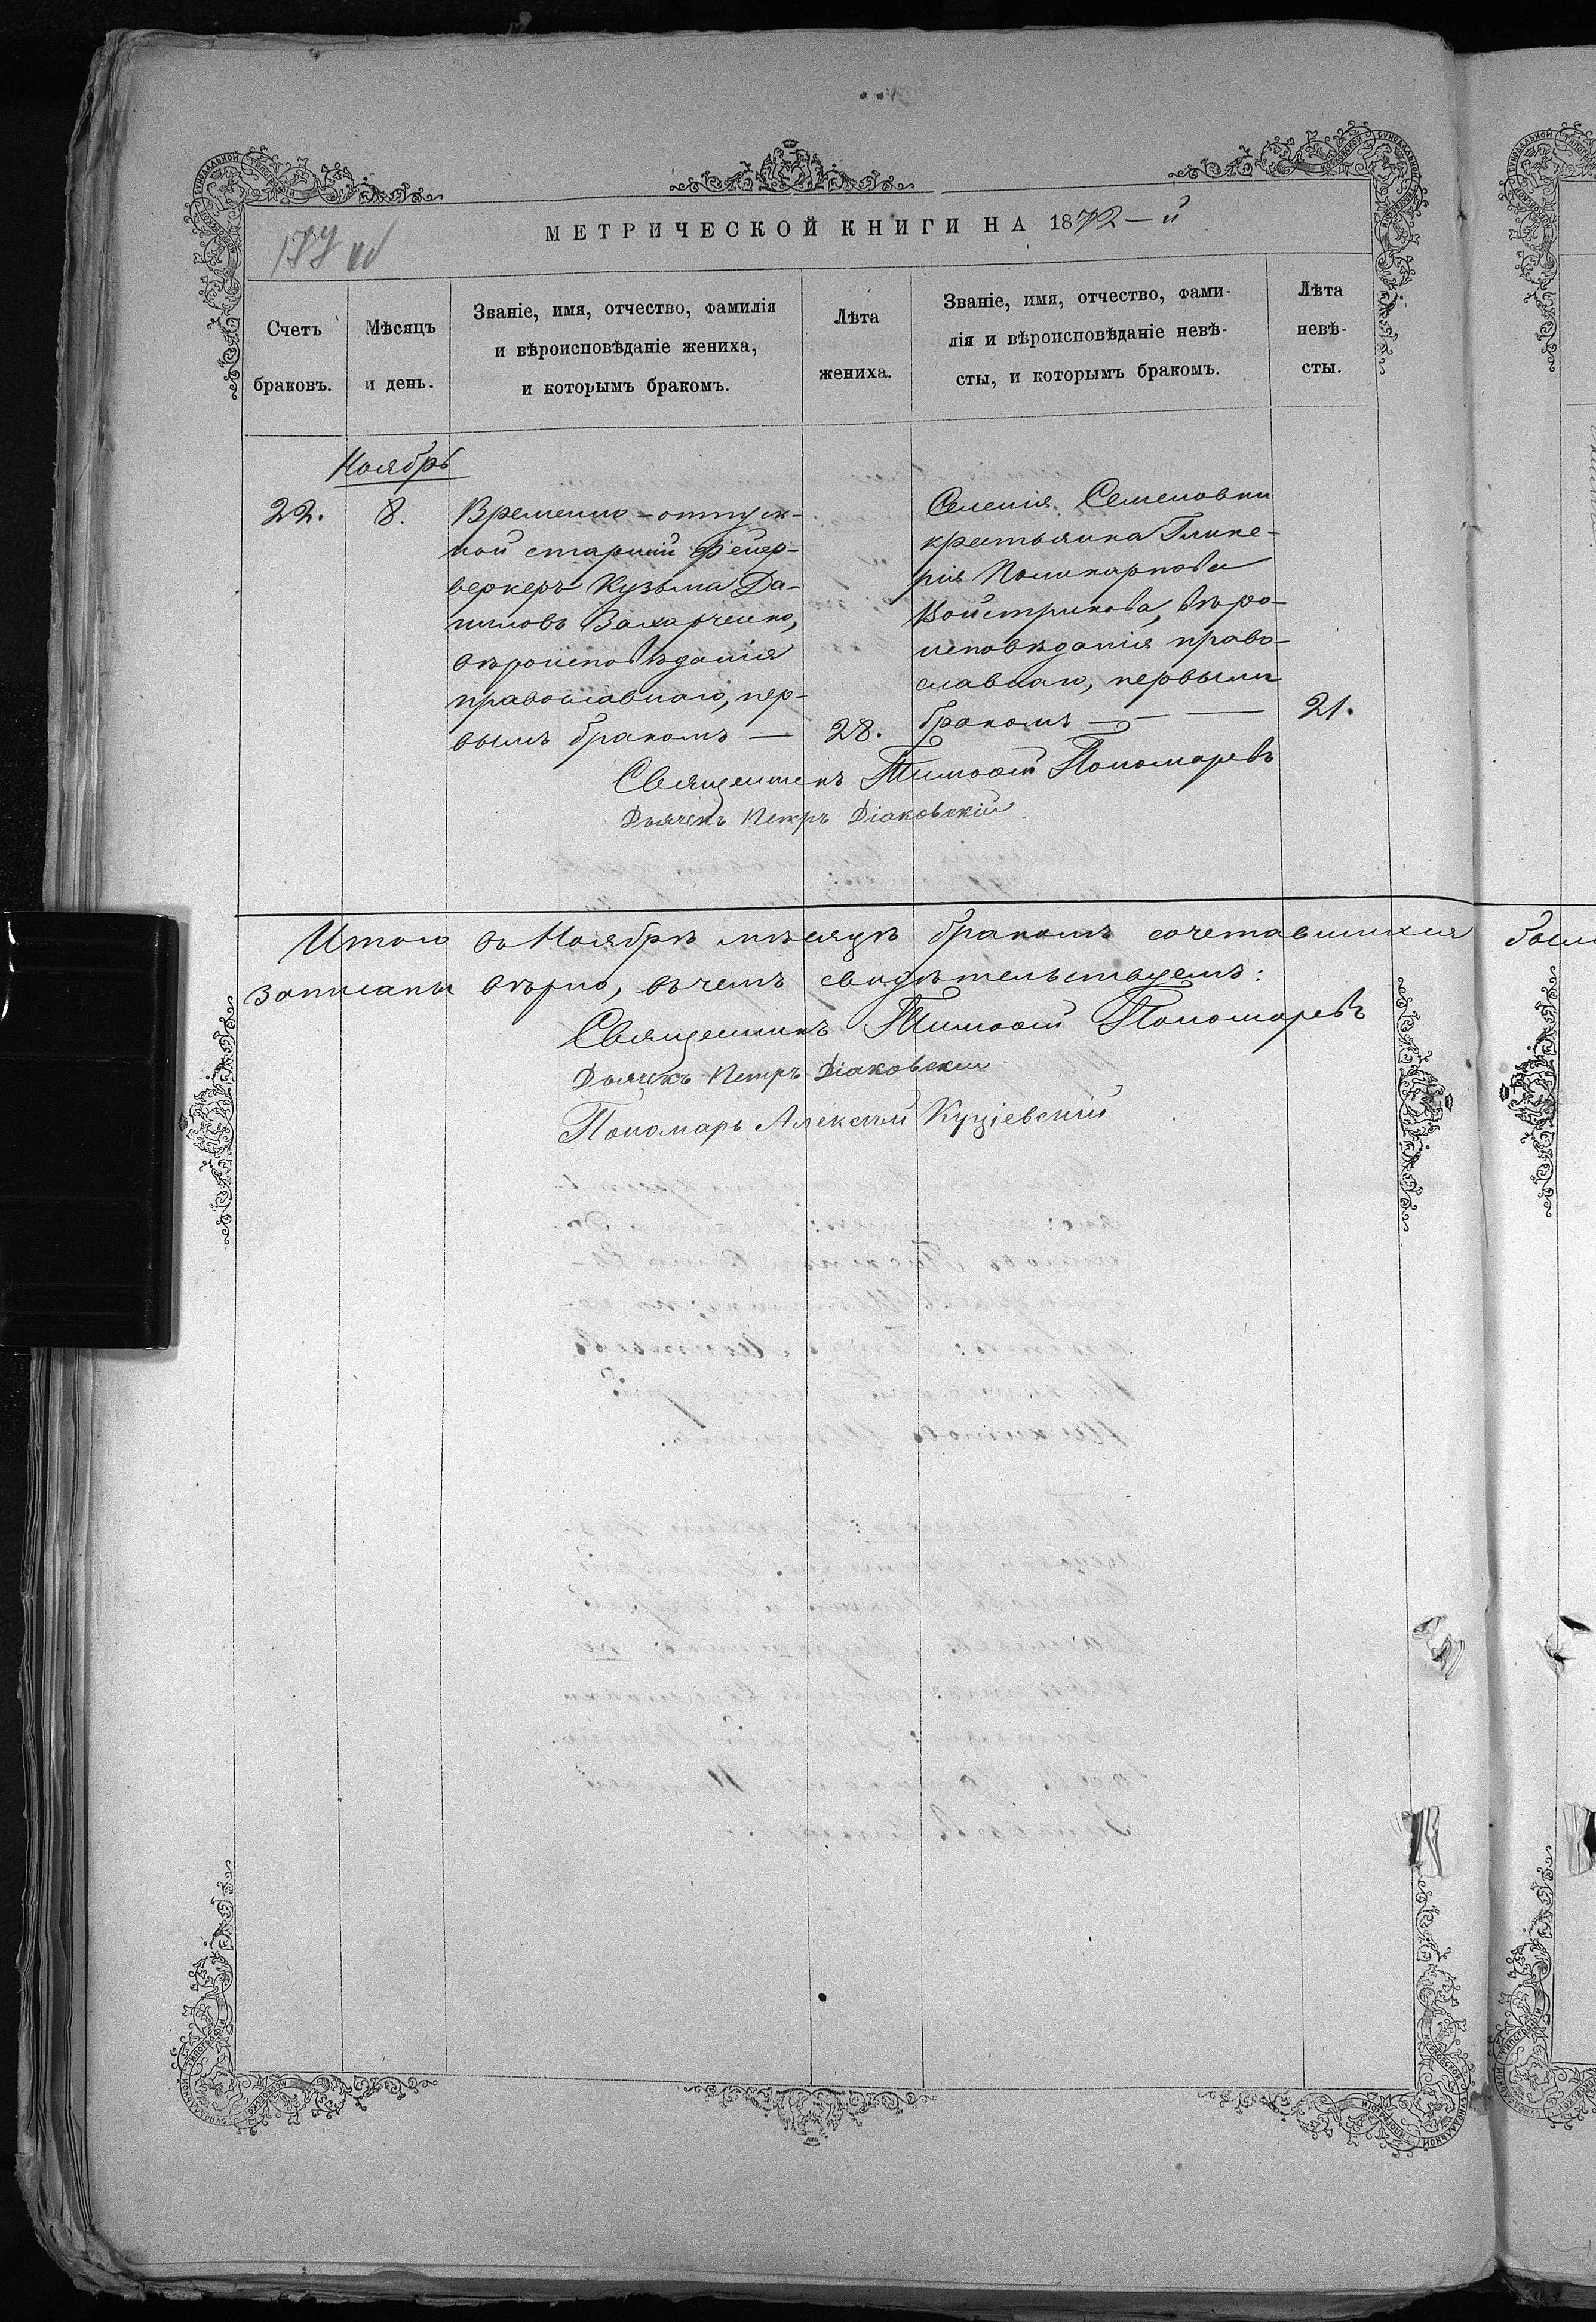 МЕТРИЧЕСКОЙ КНИГИ НА 1872-й
Счетъ браковъ.
Мѣсяцъ и день.
Званіе, имя, отчество, фамилія
и вѣроисповѣданіе жениха,
и которымъ бракомъ.
Лѣта жениха.
Званіе, имя, отчество, фами-
лія и вѣроисповѣданіе невѣ-
сты, и которымъ бракомъ.
Лѣта невѣ-
сты.
Ноябрь
22.
8.
Временно-отпуск-
ной старшій фейер-
веркеръ Кузьма Да-
ниловъ Захарченко,
вѣроисповѣданія
православнаго, пер-
вымъ бракомъ —
28.
Селенія Семеновки
крестьянка Глике-
рія Поликарпова
Войстрикова, вѣро-
исповѣданія право-
славнаго, первымъ
бракомъ — — —
21.
Священникъ Тимоѳей Пономаревъ
Дьячекъ Петръ Діаковскій
Итого въ Ноябрѣ мѣсяцѣ бракомъ сочетавшихся
записаны вѣрно, въ чемъ свидѣтельствуемъ:
Священникъ Тимоѳей Пономаревъ
Дьячекъ Петръ Діаковскій
Пономарь Алексѣй Куціевскій